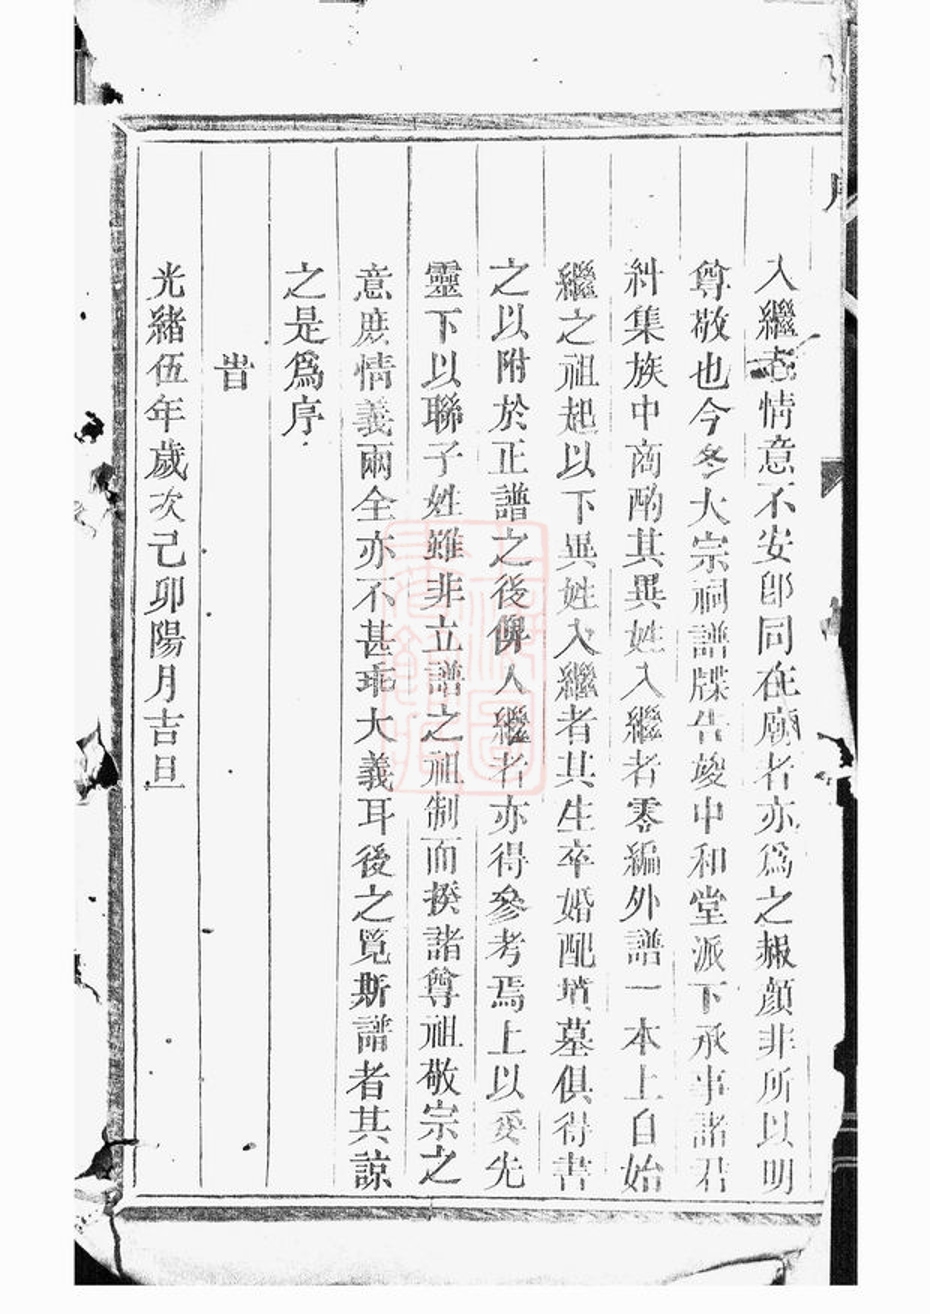 入繼者情意不安卽同在廟者亦爲之赧顔非所以明
尊敬也今冬大宗祠譜牒告竣中和堂派下承事諸君
糾集族中商酌其異姓入繼者零編外譜一本上自始
繼之祖起以下異姓入繼者其生卒婚配墳墓俱得書
之以附於正譜之後俾入繼者亦得參考焉上以妥先
靈下以聯子姓雖非立譜之祖制而揆諸尊祖敬宗之
意庶情義兩全亦不甚乖大義耳後之覓斯譜者其諒
之是爲序
旹
光緒伍年歲次己卯陽月吉旦